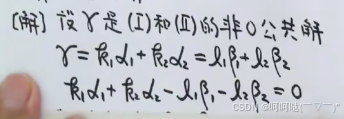 [解] 设γ是(I)和(II)的非0公共解
γ=k₁α₁+k₂α₂=l₁β₁+l₂β₂
k₁α₁+k₂α₂-l₁β₁-l₂β₂=0
CSDN @呵呵哒(￣▽￣)"